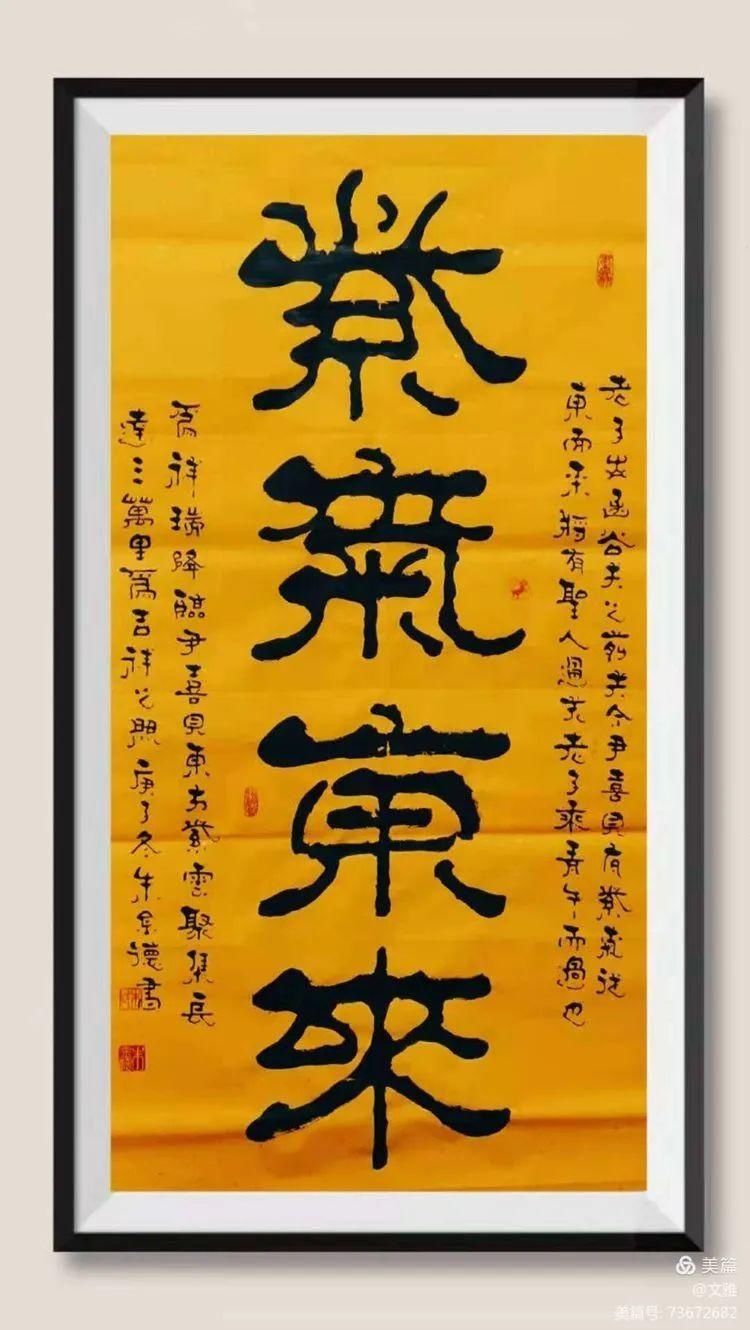 紫氣東來
老子出函谷关之前关令尹喜見有紫氣從
東而來將有聖人過关老子乘青牛而過也
為祥瑞降臨尹喜見東方紫雲聚集長
達三萬里為吉祥之照庚子冬朱金德書
美篇
@文雅
美篇号: 73672682